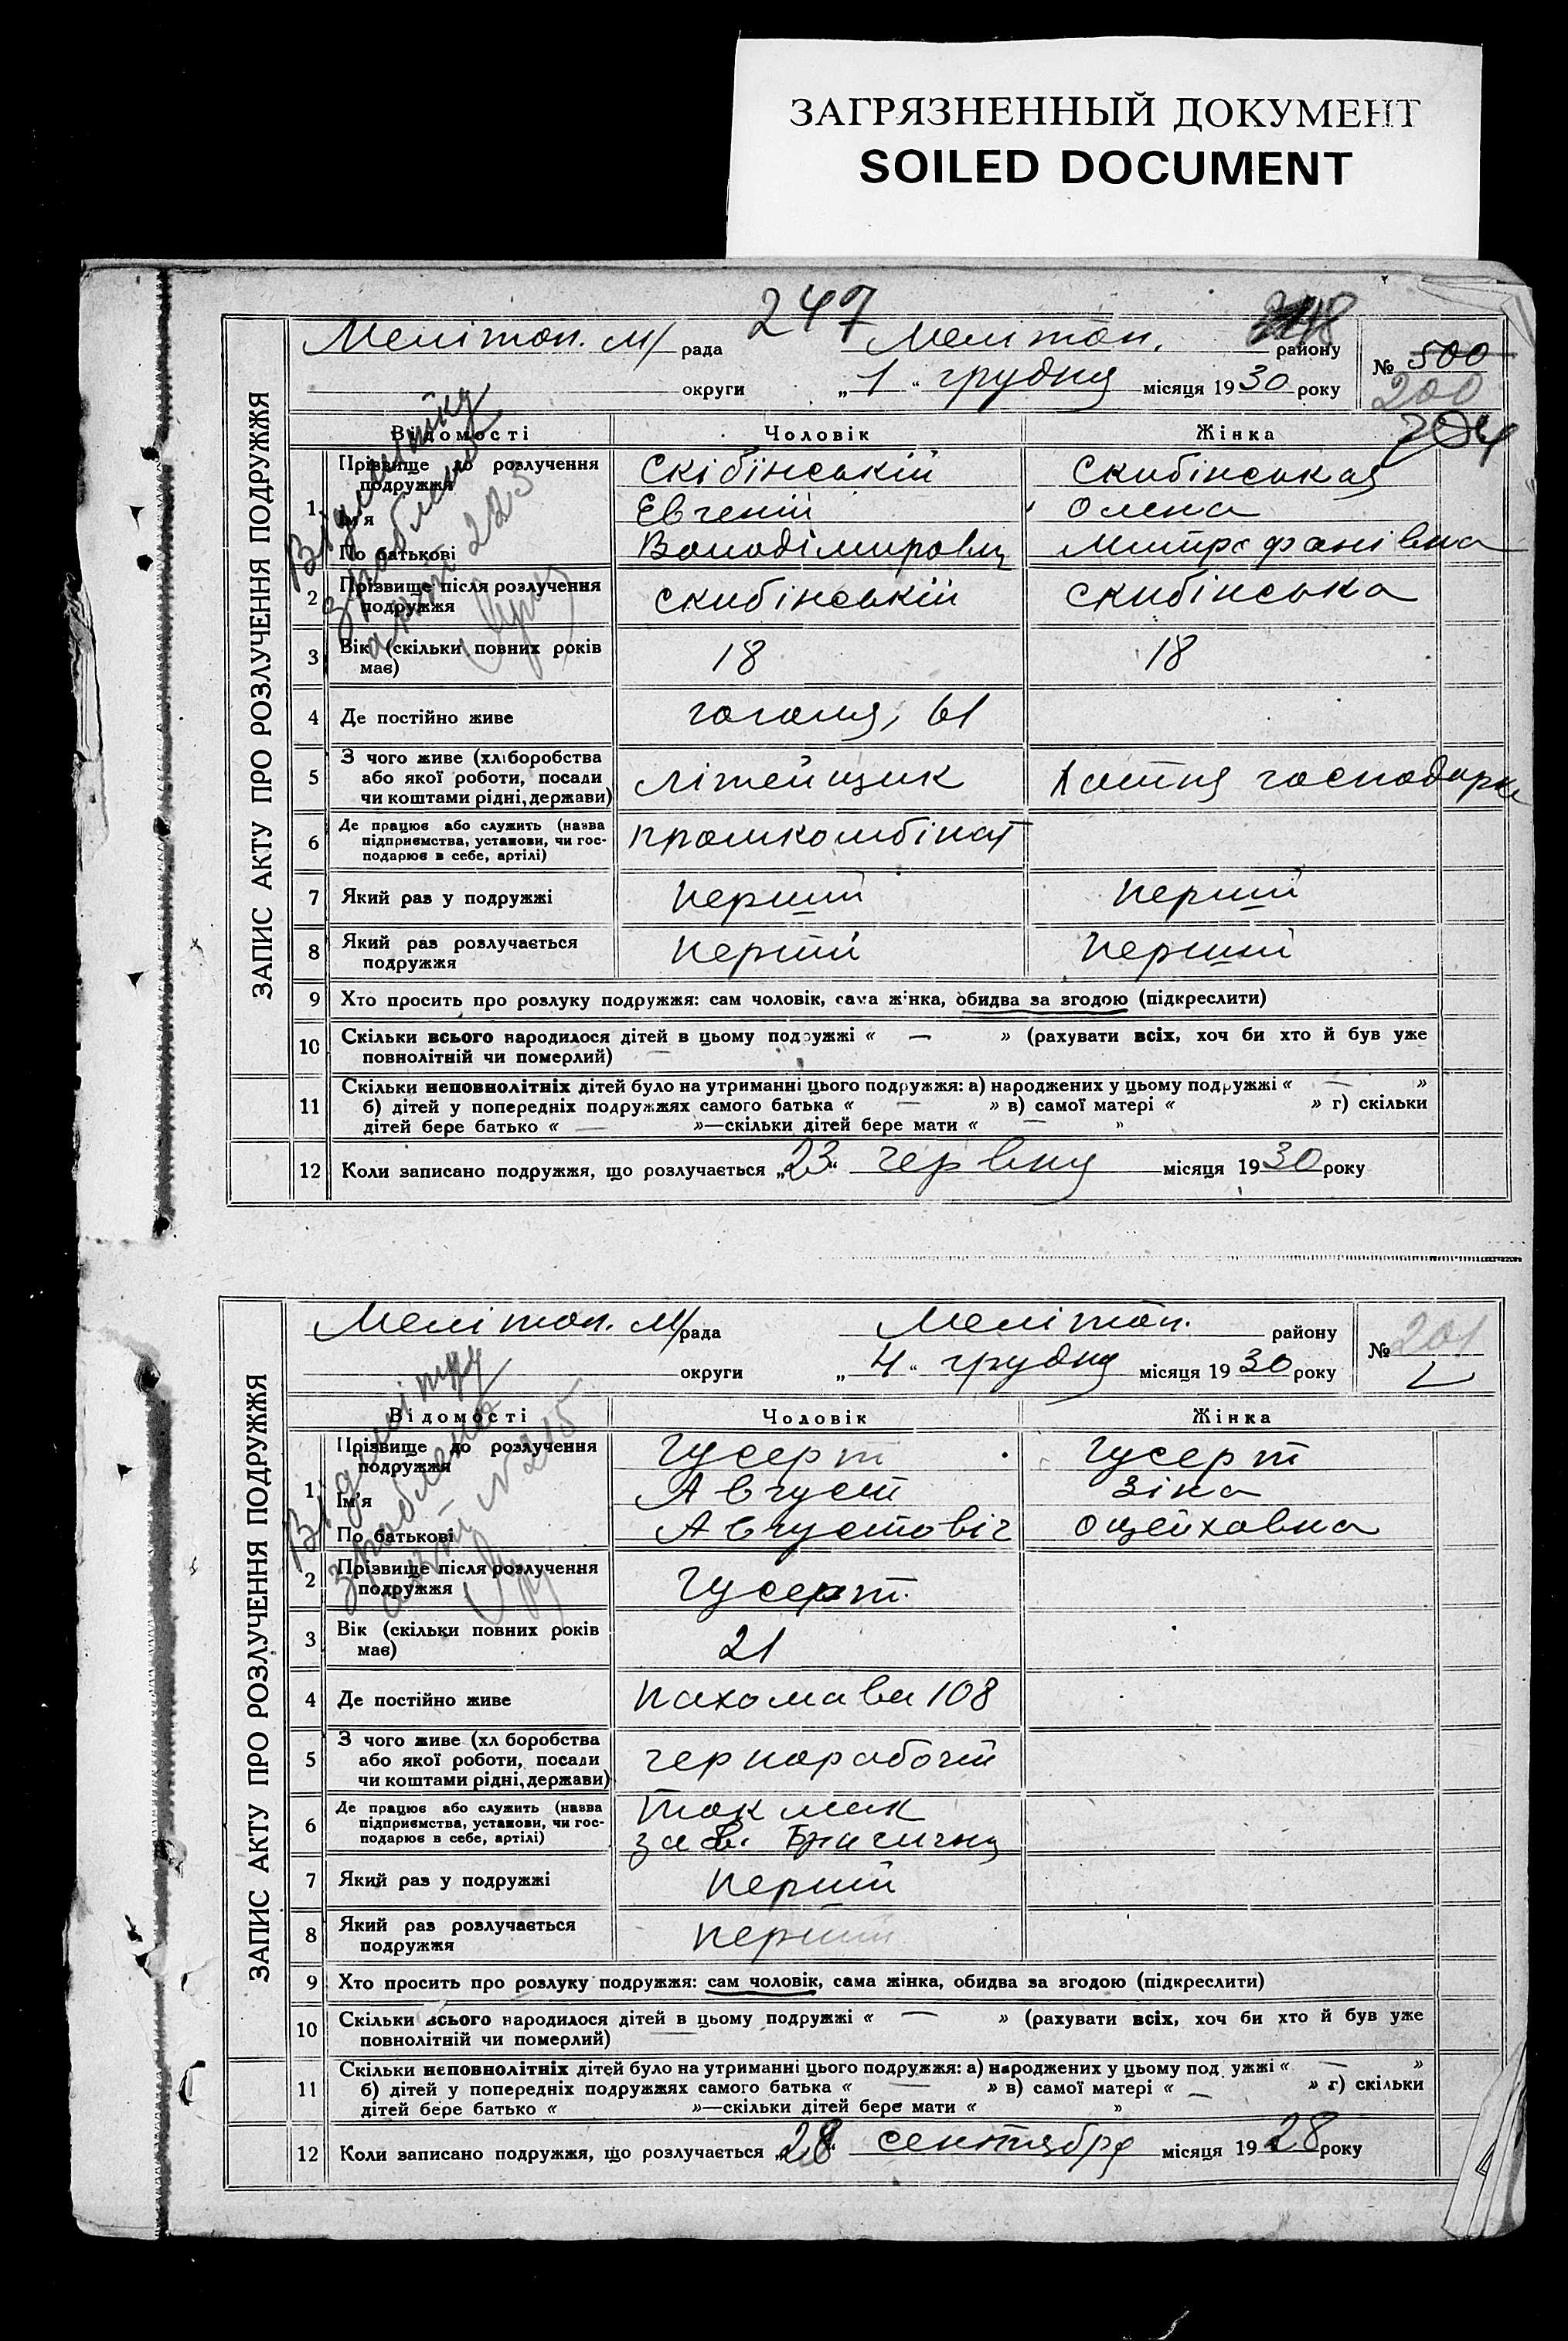 ЗАГРЯЗНЕННЫЙ ДОКУМЕНТ
SOILED DOCUMENT
247
ЗАПИС АКТУ ПРО РОЗЛУЧЕННЯ ПОДРУЖЖЯ
Мелітоп. м/ рада Мелітоп. району № 500
округи „1“ грудня місяця 1930 року 200
Відомості Чоловік Жінка
204
1 Прізвище до розлучення подружжя Скібінський Скибінская
Ім'я Евгений Олена
По батькові Володімирович Митрофанівна
2 Прізвище після розлучення подружжя скибінській скибінська
3 Вік (скільки повних років має) 18 18
4 Де постійно живе гоголя, 61
5 З чого живе (хліборобства або якої роботи, посади чи коштами рідні, держави) літейщик Хатня господарка
6 Де працює або служить (назва підприємства, установи, чи господарює в себе, артілі) промкомбінат
7 Який раз у подружжі перший перший
8 Який раз розлучається подружжя перший перший
9 Хто просить про розлуку подружжя: сам чоловік, сама жінка, обидва за згодою (підкреслити)
10 Скільки всього народилося дітей в цьому подружжі « — » (рахувати всіх, хоч би хто й був уже
повнолітній чи померлий)
11 Скільки неповнолітніх дітей було на утриманні цього подружжя: а) народжених у цьому подружжі « — »
б) дітей у попередніх подружжях самого батька « — » в) самої матері « » г) скільки
дітей бере батько « — »—скільки дітей бере мати « — »
12 Коли записано подружжя, що розлучається „23“ червня місяця 1930 року
ЗАПИС АКТУ ПРО РОЗЛУЧЕННЯ ПОДРУЖЖЯ
Мелітоп. м/ рада Мелітоп. району № 201
округи „4“ грудня місяця 1930 року
Відомості Чоловік Жінка
1 Прізвище до розлучення подружжя Гусерт Гусерт
Ім'я Август Зіна
По батькові Августовіч
2 Прізвище після розлучення подружжя Гусерт.
3 Вік (скільки повних років має) 21
4 Де постійно живе 108
5 З чого живе (хліборобства або якої роботи, посади чи коштами рідні, держави) чернорабочий
6 Де працює або служить (назва підприємства, установи, чи господарює в себе, артілі) Токмак
зав.
7 Який раз у подружжі перший
8 Який раз розлучається подружжя перший
9 Хто просить про розлуку подружжя: сам чоловік, сама жінка, обидва за згодою (підкреслити)
10 Скільки всього народилося дітей в цьому подружжі « — » (рахувати всіх, хоч би хто й був уже
повнолітній чи померлий)
11 Скільки неповнолітніх дітей було на утриманні цього подружжя: а) народжених у цьому подружжі « — »
б) дітей у попередніх подружжях самого батька « — » в) самої матері « — » г) скільки
дітей бере батько « »—скільки дітей бере мати « »
12 Коли записано подружжя, що розлучається „28“ сентября місяця 1928 року